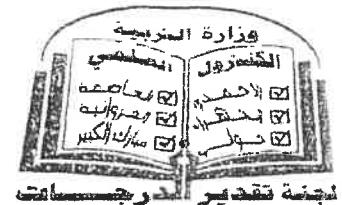 وزارة التربية
الكنترول العلمي
☑ الاحمدي ☑ العاصمة
☑ الفروانية
☑ حولي ☑ مبارك الكبير
لجنة تقدير الدرجات